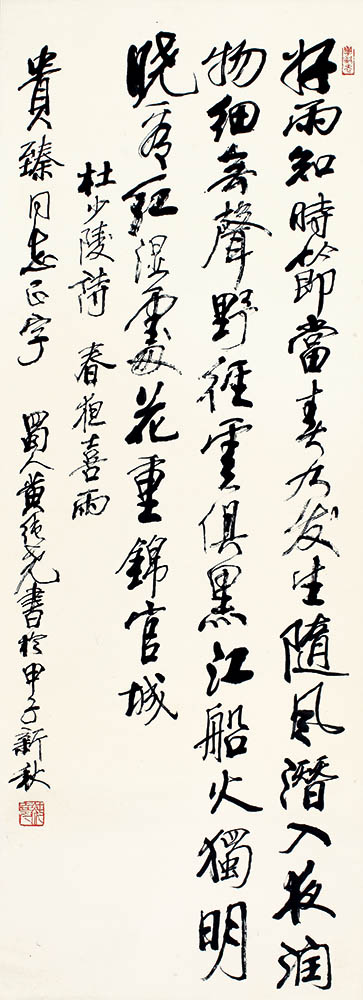 好雨知時節當春乃发生隨风潛入夜润
物细無聲野徑雲俱黑江船火獨明
晓看红湿處花重錦官城
杜少陵詩 春夜喜雨
貴臻同志正字 蜀人黄纯尧書於甲子新秋